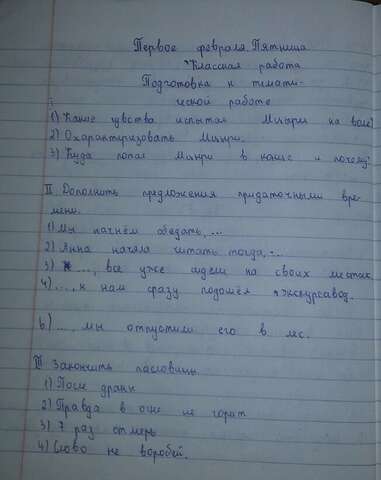 Первое февраля. Пятница
Классная работа
Подготовка к темати-
ческой работе
I
1) Какие чувства испытал Мцыри на воле?
2) Охарактеризовать Мцыри.
3) Куда попал Мцыри в конце и почему?
II Дополнить предложения придаточными вре-
мени.
1) Мы начнём обедать, ...
2) Анна начала читать тогда, ...
3) ..., все уже сидели на своих местах.
4) ..., к нам сразу подошёл экскурсовод.
6) ..., мы отпустили его в лес.
III Закончить пословицы.
1) После драки
2) Правда в огне не горит
3) 7 раз отмерь
4) Слово не воробей.